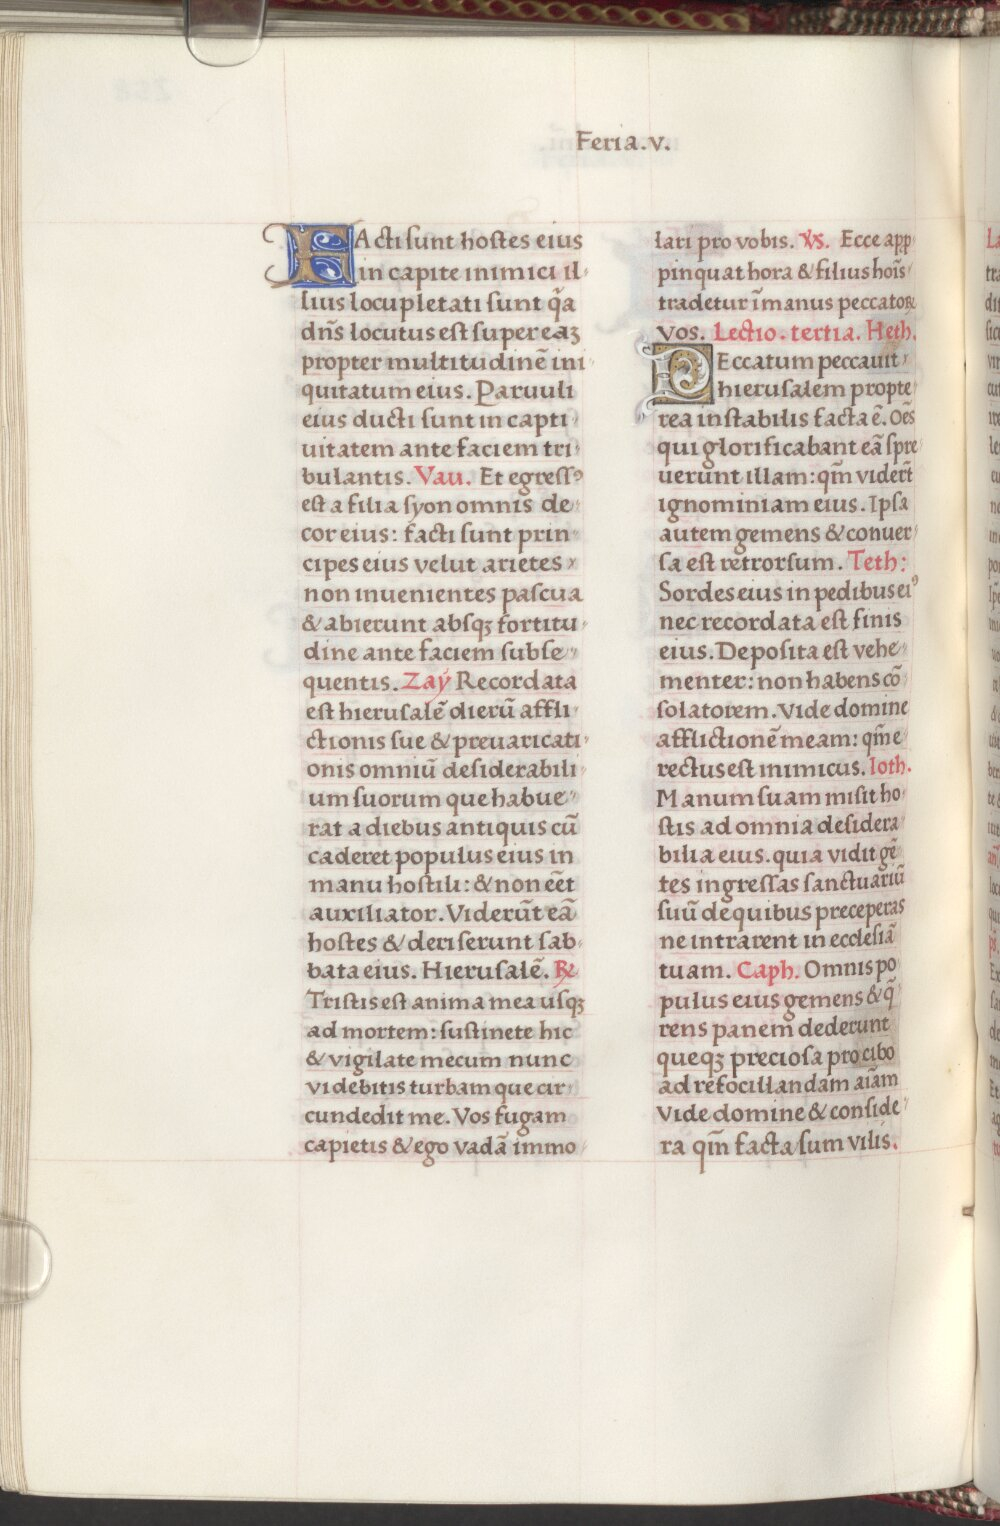 Feria.v.
FActi sunt hostes eius
in capite inimici il
lius locupletati sunt q̃a
dñs locutus est super eaʒ
propter multitudinē ini
quitatum eius. Paruuli
eius ducti sunt in capti
uitatem ante faciem tri
bulantis. Vau. Et egressꝰ
est a filia syon omnis de
cor eius: facti sunt prin
cipes eius velut arietes
non inuenientes pascua
& abierunt absqꝫ fortitu
dine ante faciem subse
quentis. Zaÿ Recordata
est hierusalē dierū affli
ctionis sue & preuaricati
onis omniū desiderabili
um suorum que habue
rat a diebus antiquis cū
caderet populus eius in
manu hostili: & non eēt
auxiliator. Viderūt eā
hostes & deriserunt sab
bata eius. Hierusalē. ℟
Tristis est anima mea usqꝫ
ad mortem: sustinete hic
& vigilate mecum nunc
videbitis turbam que cir
cundedit me. Vos fugam
capietis & ego vadā immo
lari pro vobis. Vs. Ecce app
pinquat hora & filius hoīs
tradetur ī manus peccatoꝝ
vos. Lectio. tertia. Heth.
PEccatum peccauit
hierusalem propte
rea instabilis facta ē. Oēs
qui glorificabant eā spre
uerunt illam: qm̄ vidert̄
ignominiam eius. Ipsa
autem gemens & conuer
sa est retrorsum. Teth:
Sordes eius in pedibus eiꝰ
nec recordata est finis
eius. Deposita est vehe
menter: non habens cō
solatorem. Vide domine
afflictionē meam: qm̄ e
rectus est inimicus. Ioth.
Manum suam misit ho
stis ad omnia desidera
bilia eius. quia vidit gē
tes ingressas sanctuariū
suū de quibus preceperas
ne intrarent in ecclesiā
tuam. Caph. Omnis po
pulus eius gemens & q̄
rens panem dederunt
queqꝫ preciosa pro cibo
ad refocillandam aīam
Vide domine & conside
ra qm̄ facta sum vilis.